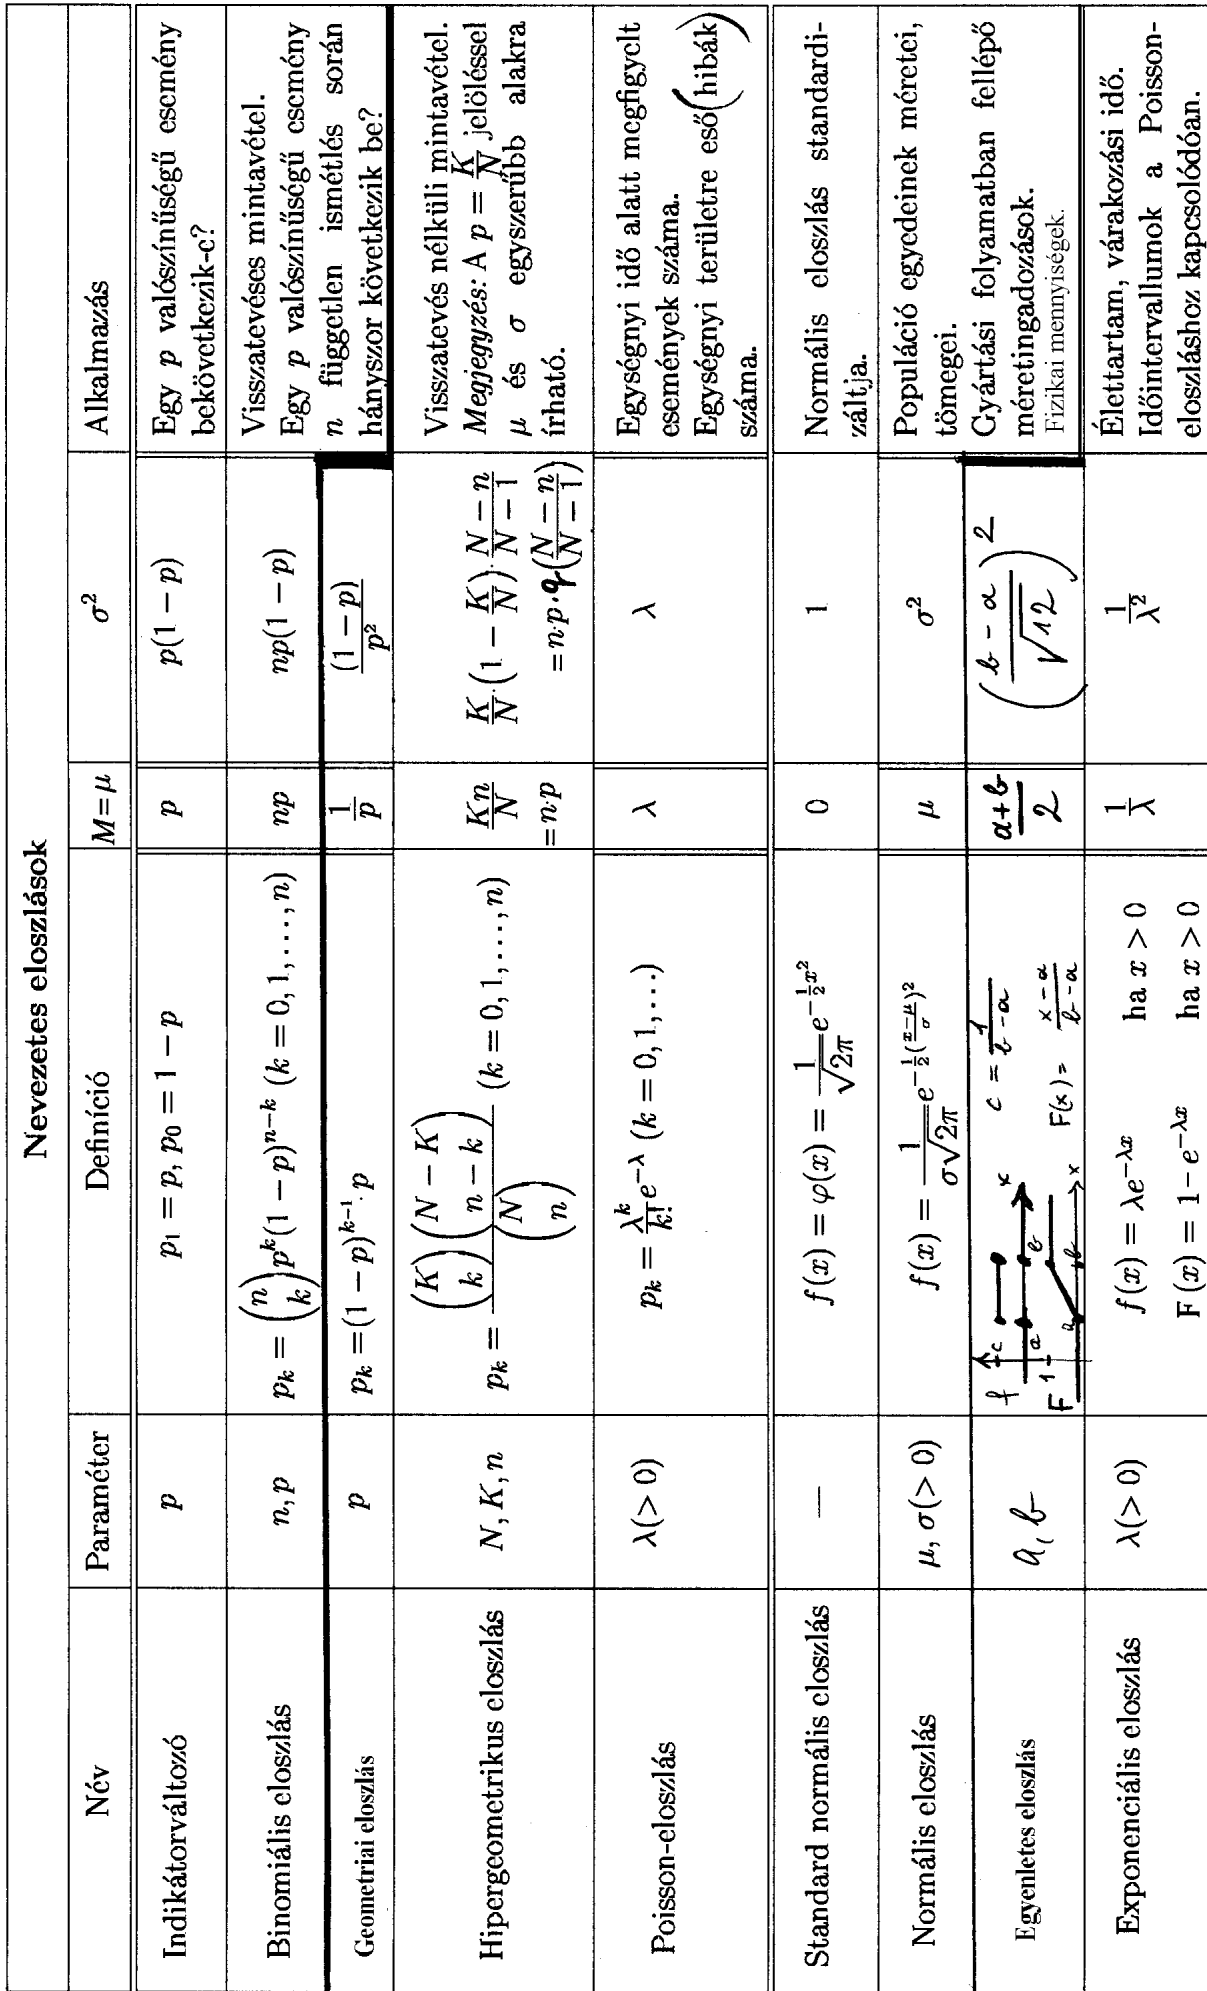 Nevezetes eloszlások
Név | Paraméter | Definíció | M = μ | σ² | Alkalmazás
Indikátorváltozó | p | p₁ = p, p₀ = 1 − p | p | p(1 − p) | Egy p valószínűségű esemény
bekövetkezik-e?
Binomiális eloszlás | n, p | pₖ = (n k) pᵏ(1 − p)ⁿ⁻ᵏ (k = 0, 1, …, n) | np | np(1 − p) | Visszatevéses mintavétel.
Egy p valószínűségű esemény
n független ismétlés során
hányszor következik be?
Geometriai eloszlás | p | pₖ = (1 − p)ᵏ⁻¹·p | 1/p | (1 − p)/p²
Hipergeometrikus eloszlás | N, K, n | pₖ = (K k)(N − K n − k)/(N n) (k = 0, 1, …, n) | Kn/N | K/N·(1 − K/N)·(N − n)/(N − 1) | Visszatevés nélküli mintavétel.
= n·p | = n·p·q(N − n)/(N − 1)
Megjegyzés: A p = K/N jelöléssel
μ és σ egyszerűbb alakra
írható.
Poisson-eloszlás | λ(> 0) | pₖ = λᵏ/k! e^(−λ) (k = 0, 1, …) | λ | λ | Egységnyi idő alatt megfigyelt
események száma.
Egységnyi területre eső (hibák)
száma.
Standard normális eloszlás | — | f(x) = φ(x) = 1/√(2π) e^(−½x²) | 0 | 1 | Normális eloszlás standardi-
záltja.
Normális eloszlás | μ, σ(> 0) | f(x) = 1/(σ√(2π)) e^(−½((x−μ)/σ)²) | μ | σ² | Populáció egyedeinek méretei,
tömegei.
Gyártási folyamatban fellépő
méretingadozások.
Fizikai mennyiségek.
Egyenletes eloszlás | a, b | f c a b x c = 1/(b − a) | (a+b)/2 | ((b − a)/√12)²
F 1 a b x F(x) = (x − a)/(b − a)
Exponenciális eloszlás | λ(> 0) | f(x) = λe^(−λx) ha x > 0 | 1/λ | 1/λ² | Élettartam, várakozási idő.
F(x) = 1 − e^(−λx) ha x > 0
Időintervallumok a Poisson-
eloszláshoz kapcsolódóan.